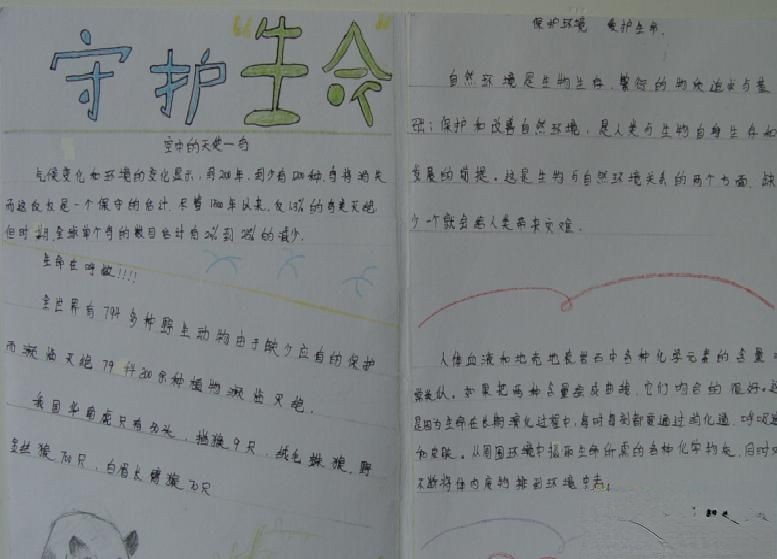 守护“生命”
空中的天使—鸟
气候变化和环境的变化显示，到200年，至少有1200种鸟将消失
而这仅仅是一个保守的估计．尽管1800年以来，仅1.3%的鸟类灭绝．
但时期，全球单个鸟的数目估计有20%到25%的减少．
生命在呼救!!!!
全世界有794多种野生动物由于缺少应有的保护
而濒临灭绝
余种植物濒临灭绝．
我国华南虎只有
9只，
野
金丝猴700只，白眉长臂猿70只
保护环境 爱护生命．
自然环境是生物生存、繁衍的物质
与基
础；保护和改善自然环境，是人类与生物自身生存和
发展的前提。这是生物与自然环境关系的两个方面．缺
少一个就会给人类带来灾难．
人体血液和地壳地表岩石中各种化学元素的含量
类似．如果把两种含量绘成曲线，它们吻合的很好。
是因为生命在长期演化过程中，每时每刻都要通过消化道．呼吸道
和皮肤。从周围环境中
生命所需的各种化学物质，同时
不断将体内废物排到环境中去。